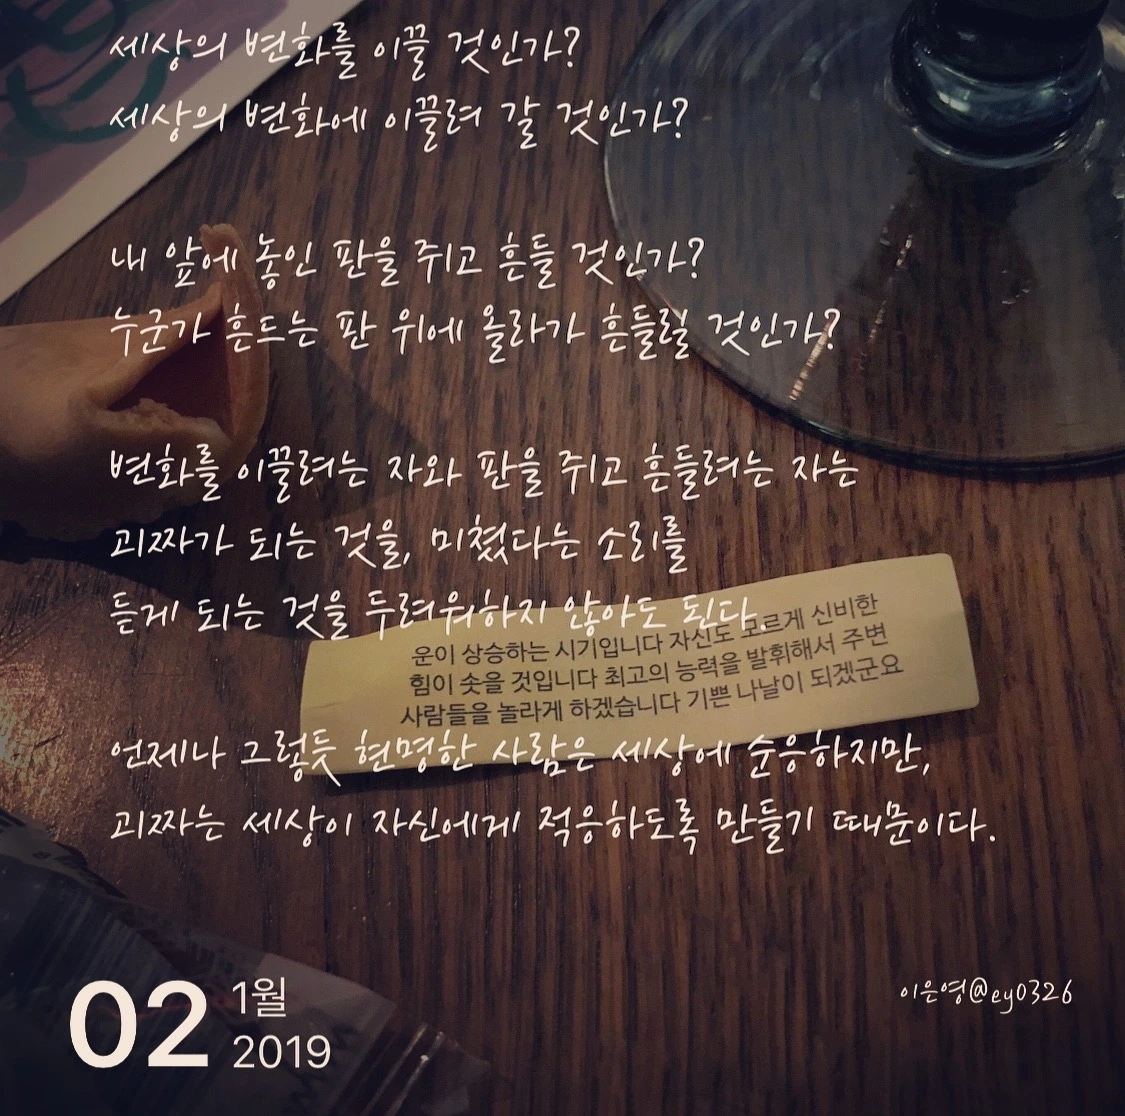 세상의 변화를 이끌 것인가?
세상의 변화에 이끌려 갈 것인가?
내 앞에 놓인 판을 쥐고 흔들 것인가?
누군가 흔드는 판 위에 올라가 흔들릴 것인가?
변화를 이끌려는 자와 판을 쥐고 흔들려는 자는
괴짜가 되는 것을, 미쳤다는 소리를
듣게 되는 것을 두려워하지 않아도 된다.
운이 상승하는 시기입니다 자신도 모르게 신비한
힘이 솟을 것입니다 최고의 능력을 발휘해서 주변
사람들을 놀라게 하겠습니다 기쁜 나날이 되겠군요
언제나 그렇듯 현명한 사람은 세상에 순응하지만,
괴짜는 세상이 자신에게 적응하도록 만들기 때문이다.
이은영@ey0326
02 1월
2019